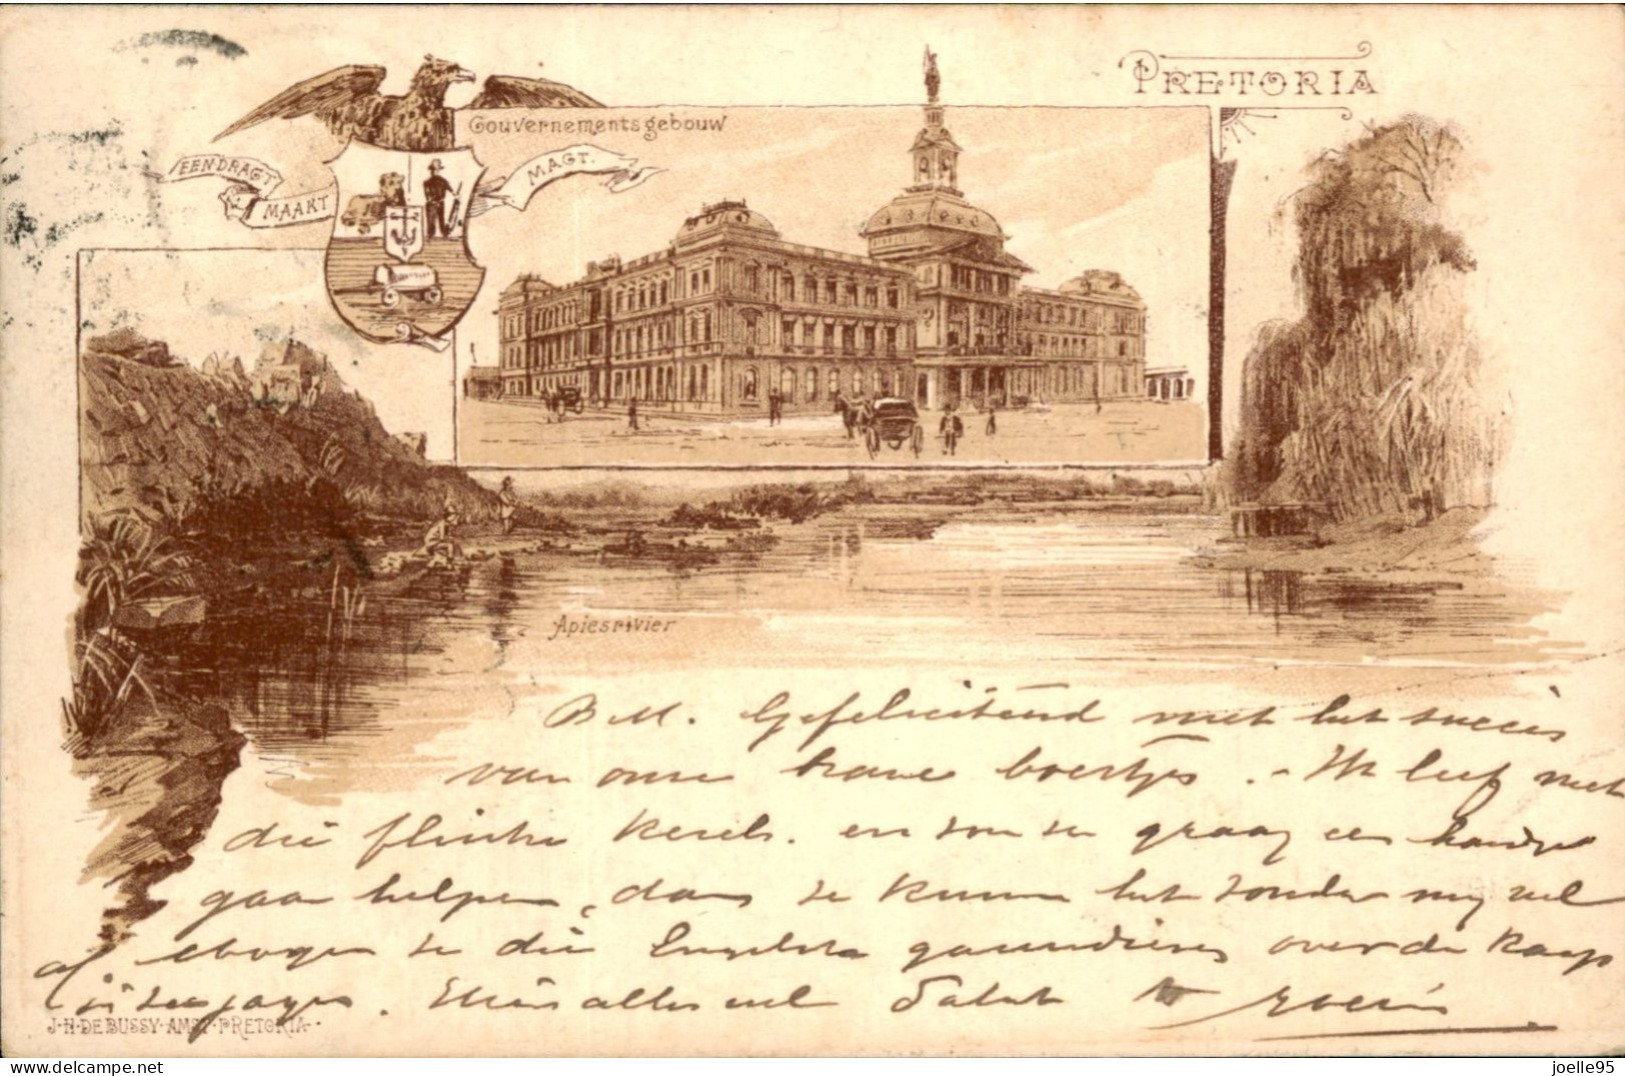 PRETORIA
Gouvernementsgebouw
EENDRAGT
MAAKT
MAGT.
Apiesrivier
B M. Gefeliciteerd met het succes
van onze brave boertjes. - Ik leef met
die flinke kerels. en zou ze graag een handje
gaan helpen, dan ze kunnen het zonder mij wel
af. ze die Engelsche over de Kaap
in zee jagen. alles wel Saluut
J. H. DE BUSSY. AMST. PRETORIA.
delcampe.net
joelle95